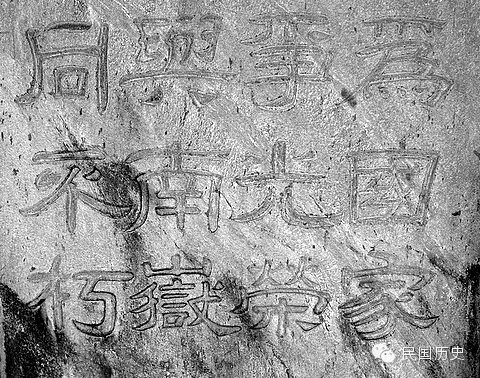 爲國家
爭光榮
與南嶽
同不朽
民国历史